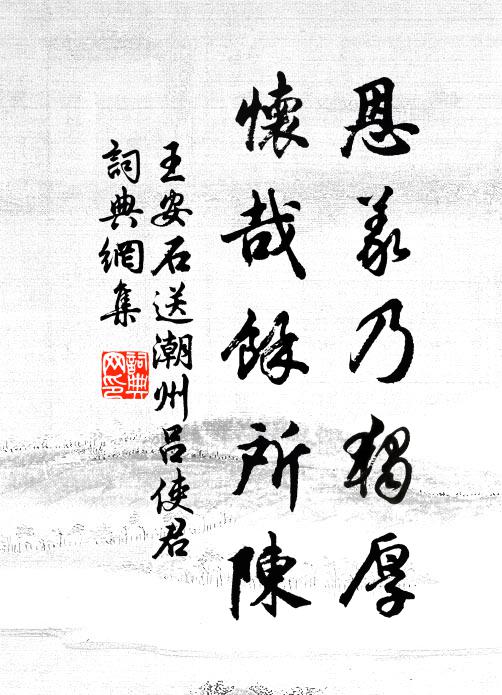 恩義乃獨厚
懷哉餘所陳
王安石送潮州呂使君
詞典網集
詞典
网印